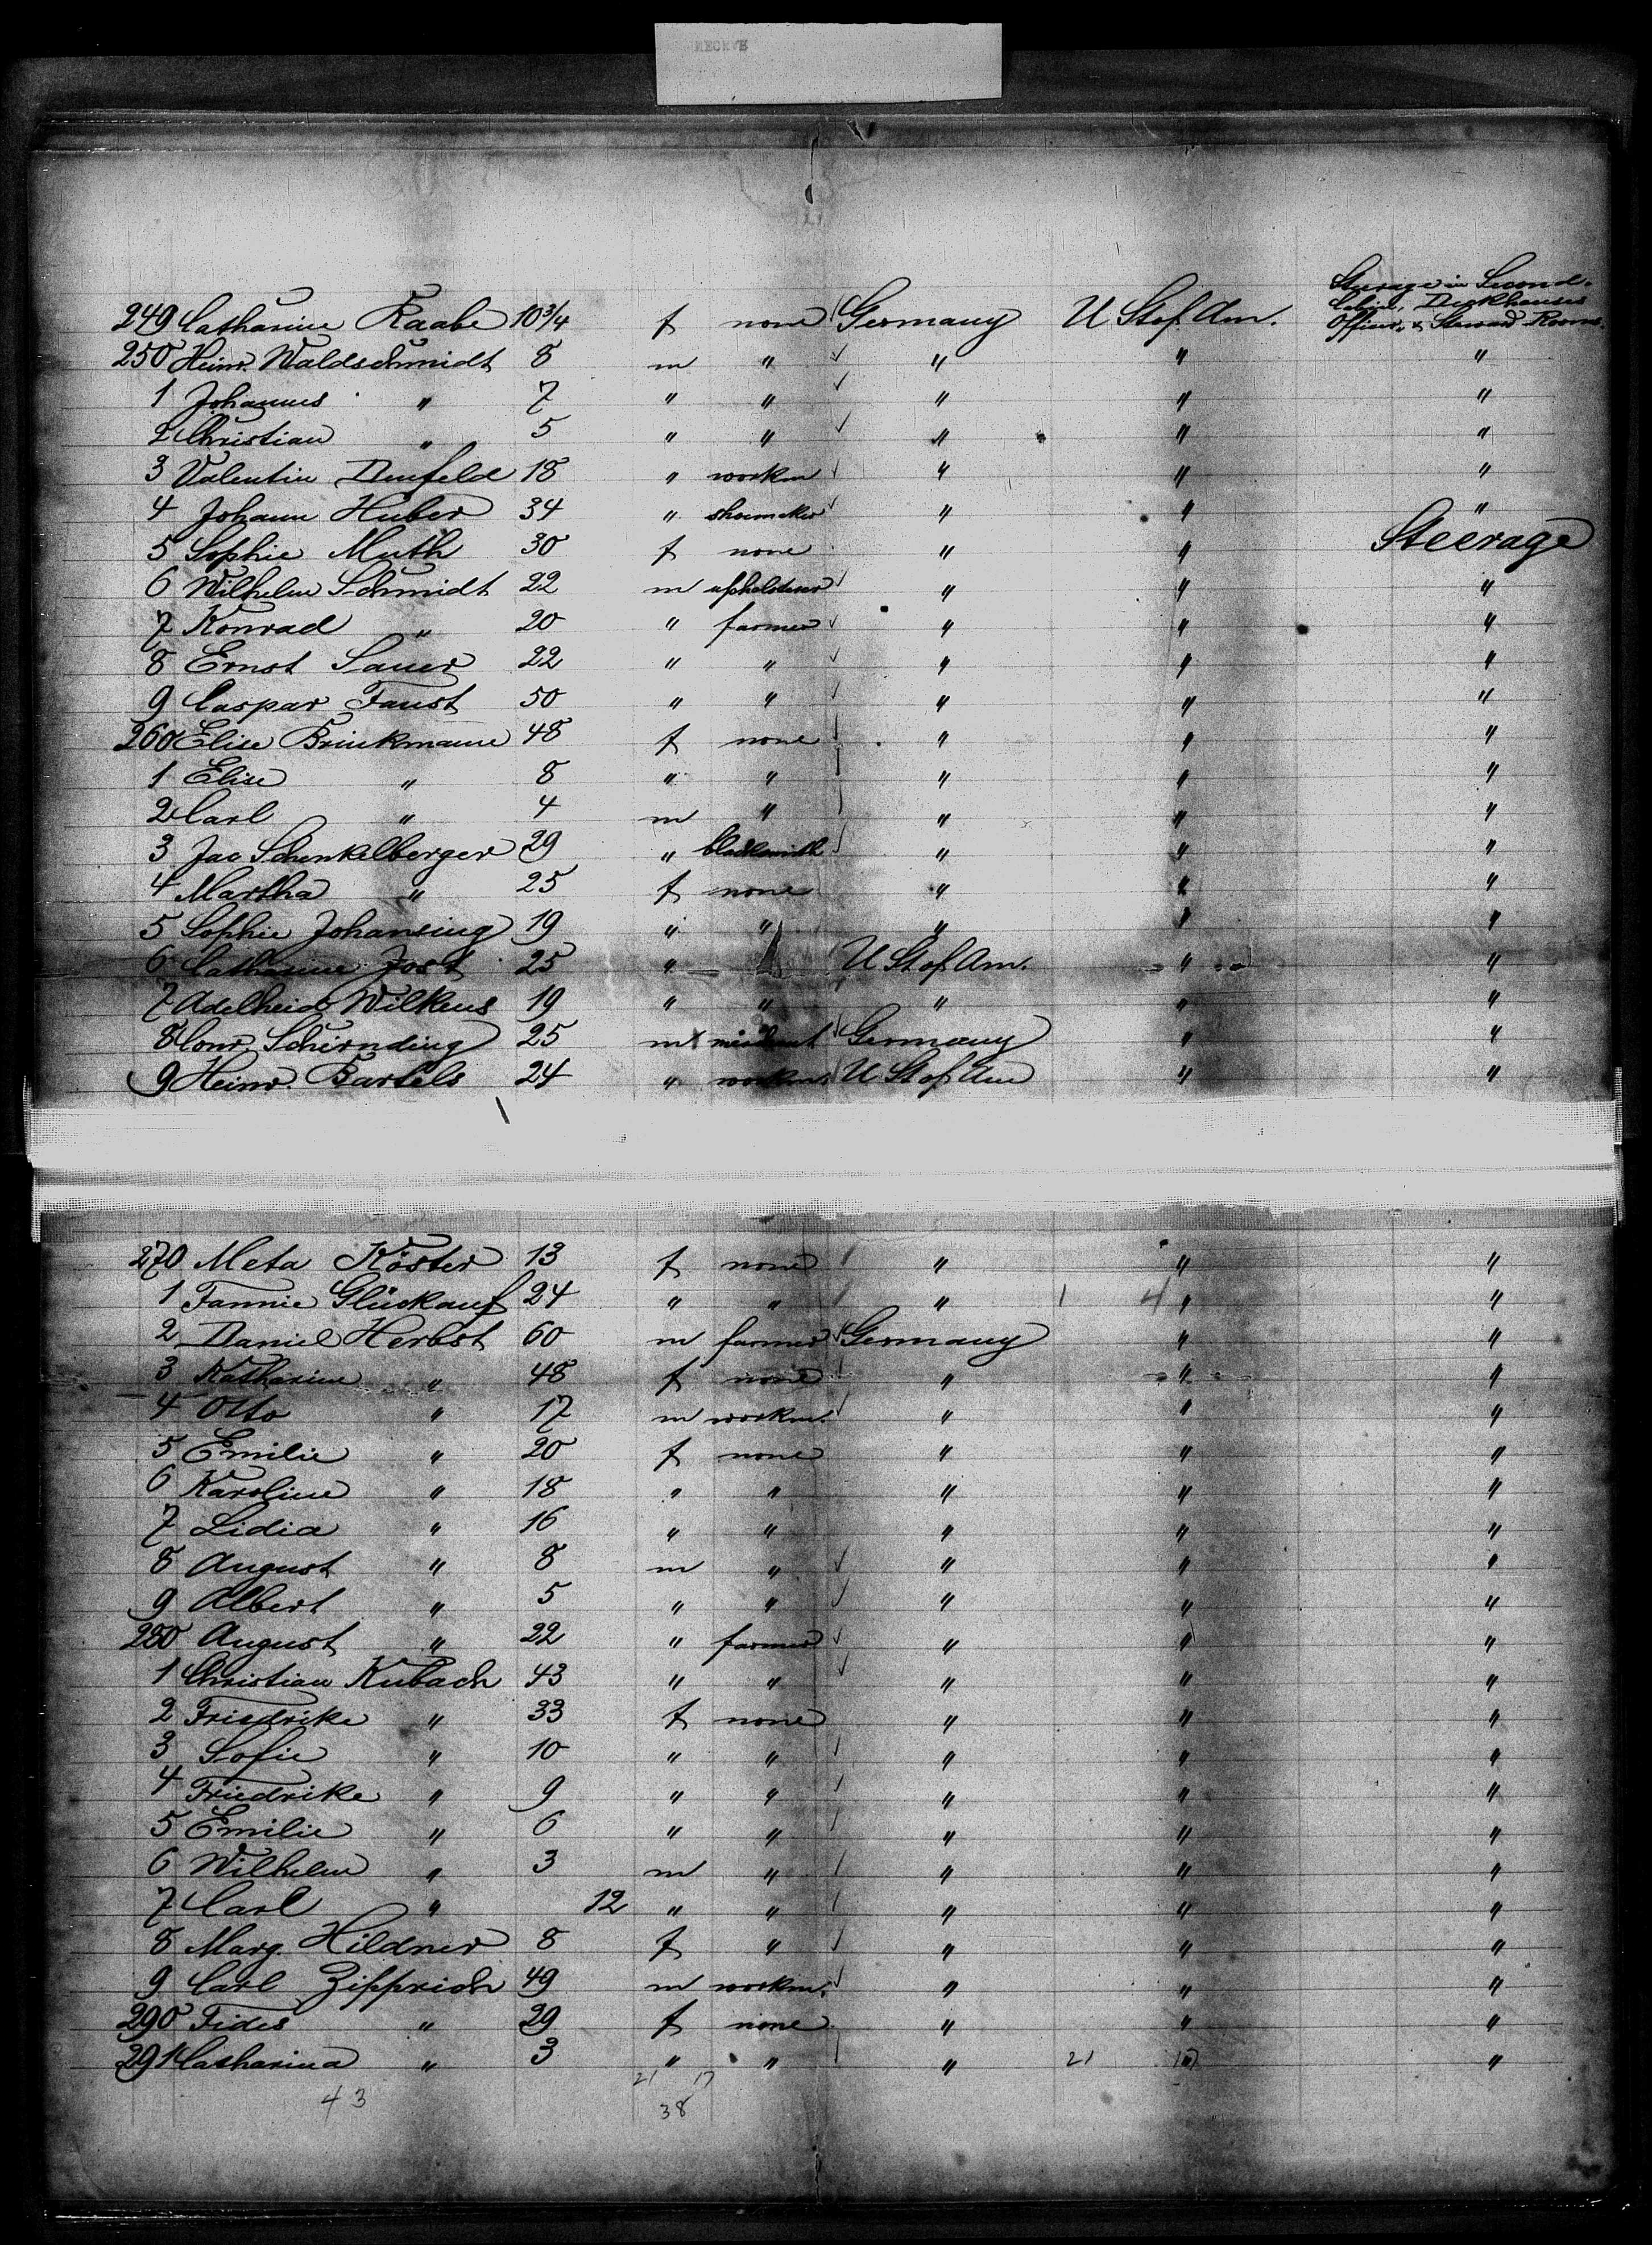 Steerage in Second.
Cabin, Deckhouses
249 Catharine Raabe 10¾ f none Germany U St of Am. Officers & Steward Rooms.
250 Heinr. Waldschmidt 8 m " " " "
1 Johannes " 7 " " " " "
2 Christian " 5 " " " " "
3 Valentin Denfeld 18 " workm " " "
4 Johann Huber 34 " shoemaker " " "
5 Sophie Muth 30 f none " " Steerage
6 Wilhelm Schmidt 22 m upholsterer " " "
7 Konrad " 20 " farmer " " "
8 Ernst Sauer 22 " " " " "
9 Caspar Faust 50 " " " " "
260 Elise Brinkmann 48 f none " " "
1 Elise " 8 " " " " "
2 Carl " 4 m " " " "
3 Jac Schenkelberger 29 " blacksmith " " "
4 Martha " 25 f none " " "
5 Sophie Johansing 19 " " " " "
6 Catharine Jost 25 " " U St of Am. " "
7 Adelheid Wilkens 19 " " " " "
8 Conr. Schirnding 25 m Germany " "
9 Heinr. Bartels 24 " workm. U St of Am " "
270 Meta Köster 13 f none " " "
1 Fannie Glückauf 24 " " " 1 4 " "
2 Daniel Herbst 60 m farmer Germany " "
3 Katharine " 48 f none " " "
4 Otto " 17 m workm. " " "
5 Emilie " 20 f none " " "
6 Karoline " 18 " " " " "
7 Lidia " 16 " " " " "
8 August " 8 m " " " "
9 Albert " 5 " " " " "
280 August " 22 " farmer " " "
1 Christian Kubach 43 " " " " "
2 Friedrike " 33 f none " " "
3 Sofie " 10 " " " " "
4 Friedrike " 9 " " " " "
5 Emilie " 6 " " " " "
6 Wilhelm " 3 m " " " "
7 Carl " 12 " " " " "
8 Marg. Hildner 8 f " " " "
9 Carl Zipprich 49 m workm. " " "
290 Fides " 29 f none " " "
291 Catharina " 3 " " " 21 17 "
21 17
43 38